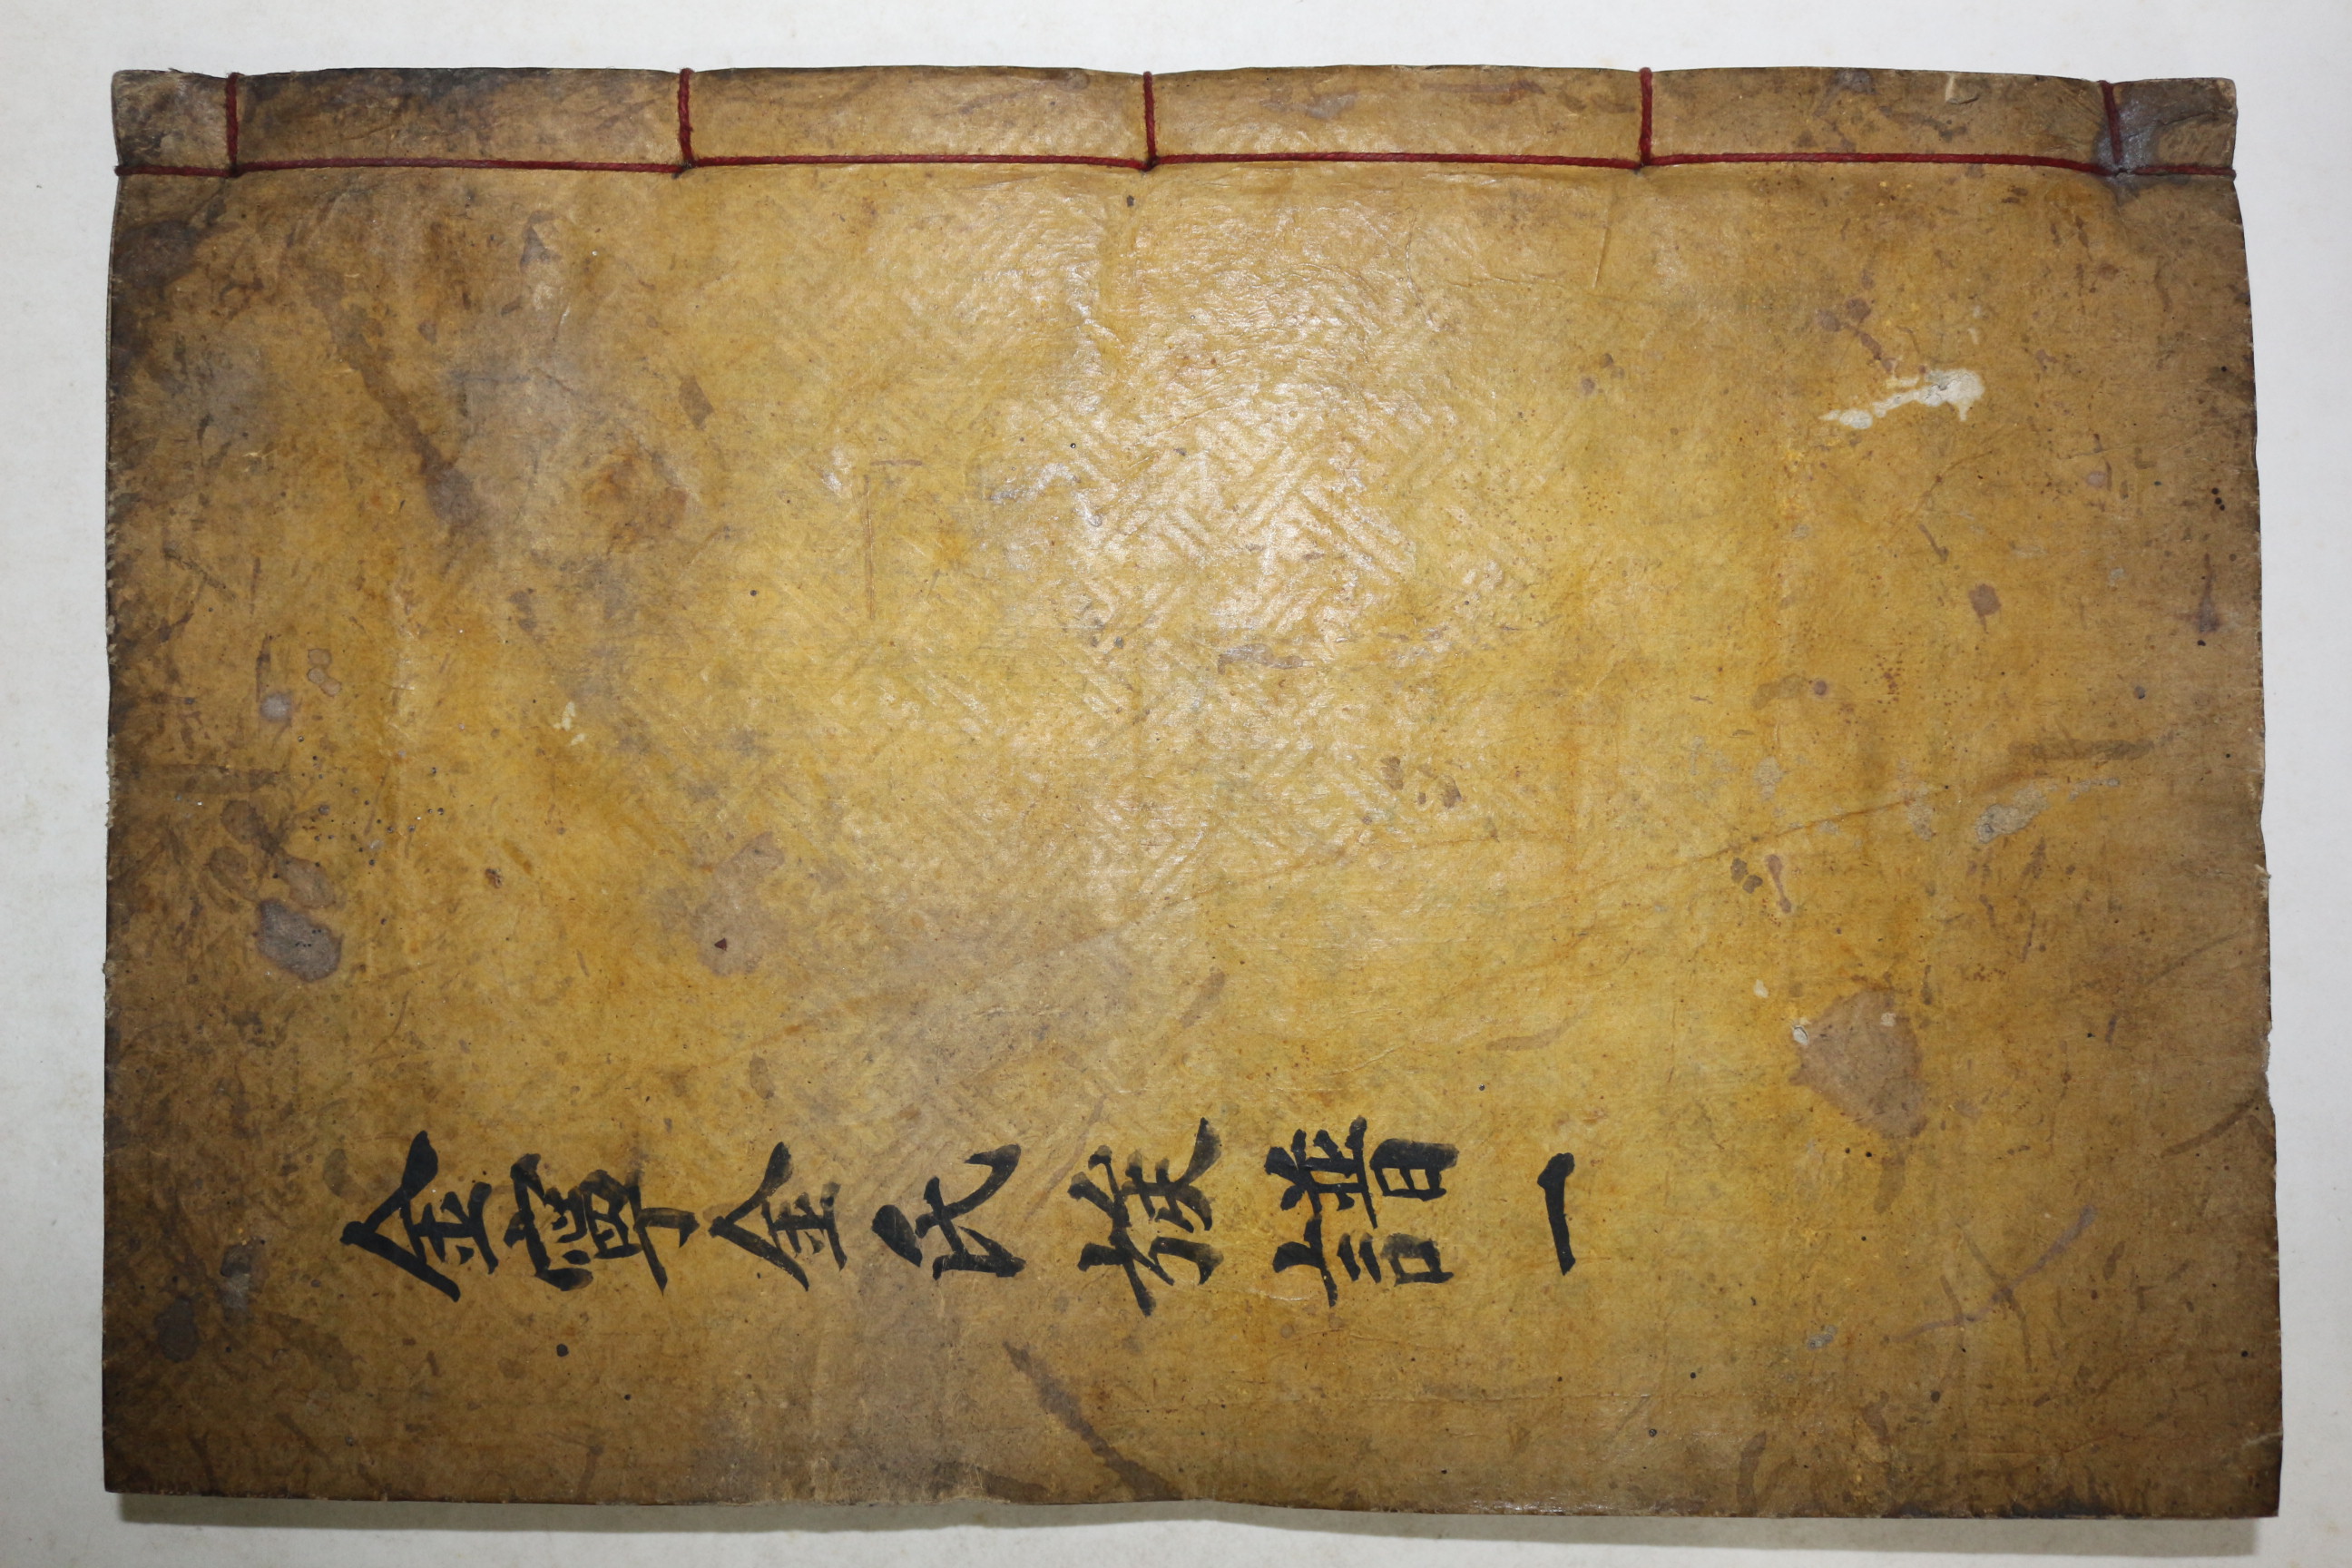 金寧金氏族譜 一